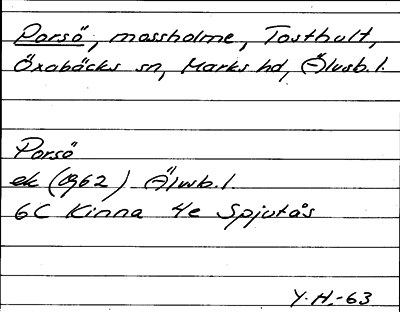 Porsö, mossholme, Tosthult,
Öxabäcks sn, Marks hd, Älvsb. l.
Porsö
ek (0962) Älvsb. l.
6C Kinna 4e Spjutås
Y. H.-63